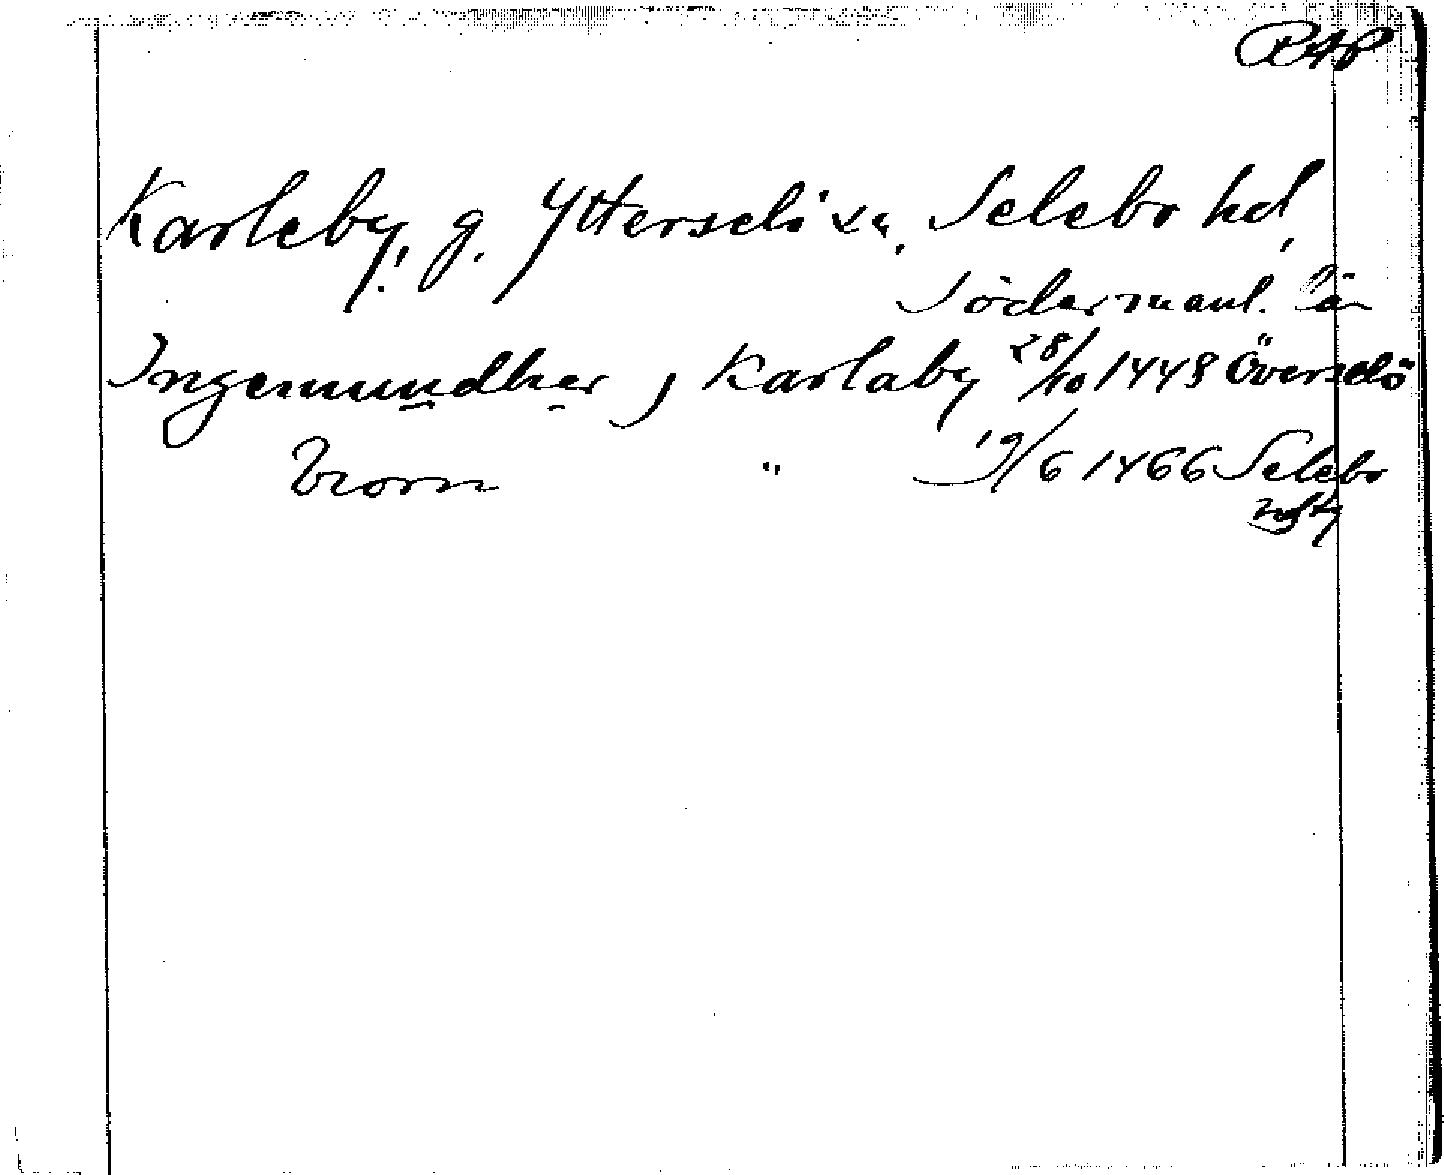 RAP
Karleby, g. Ytterselö sn, Selebo hd,
Södermanl. län
Ingemundher j Karlaby 28/10 1448 Överselö
Biorn " 19/6 1466 Selebo